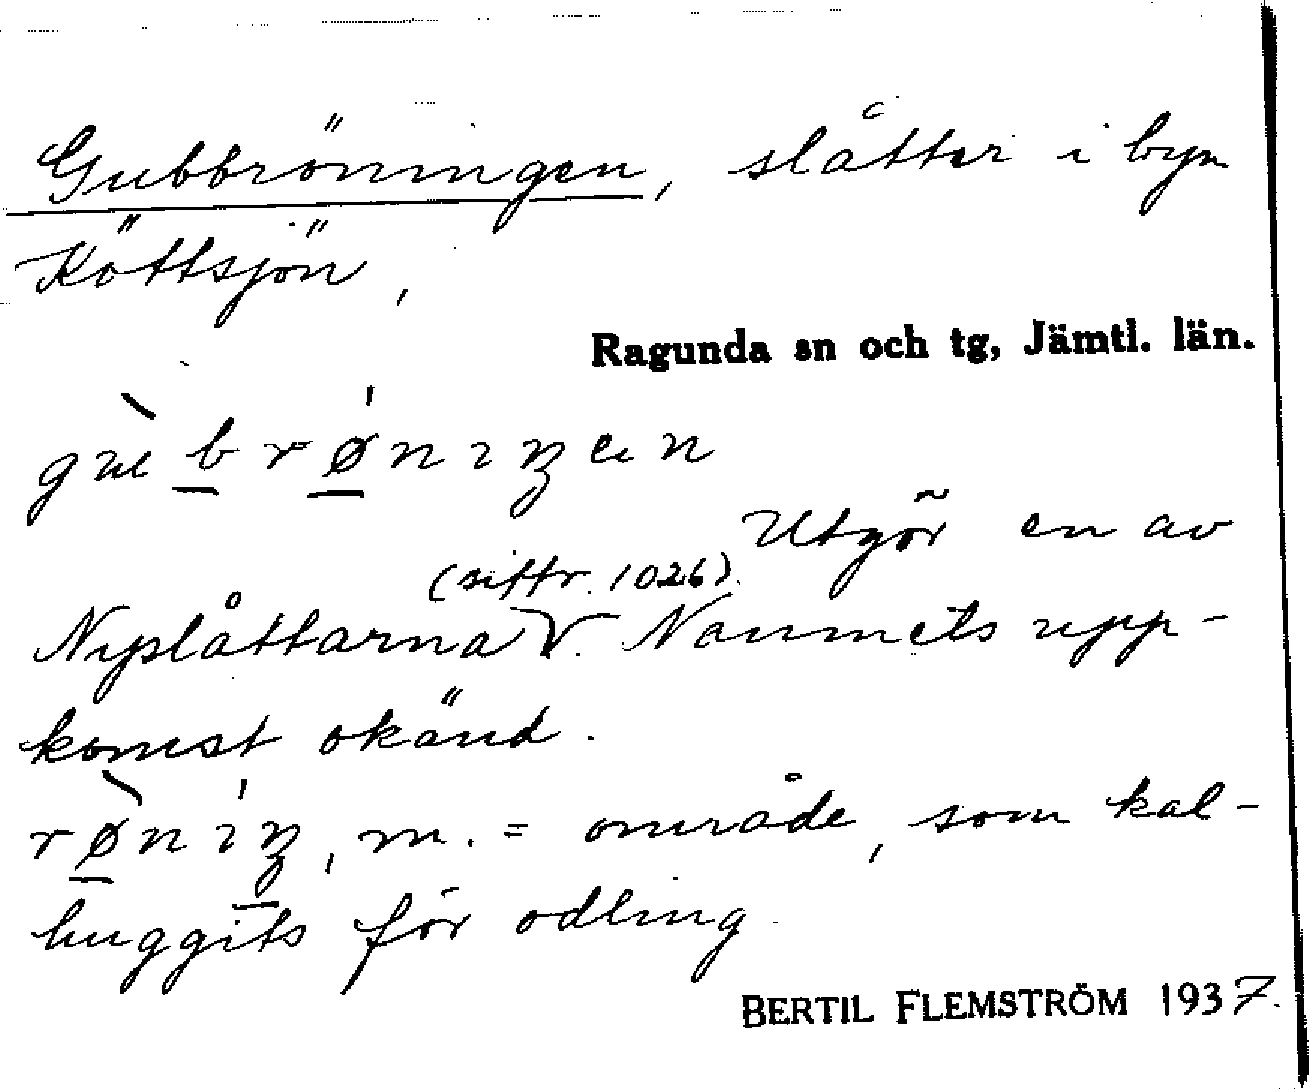 Gubbröningen, slåtter i byn
Köttsjön,
Ragunda sn och tg, Jämtl. län.
Utgör en av
(siffr. 1026)
Nyslåttarna. Namnets upp-
komst okänd.
m. = område, som kal-
huggits för odling
BERTIL FLEMSTRÖM 1937.